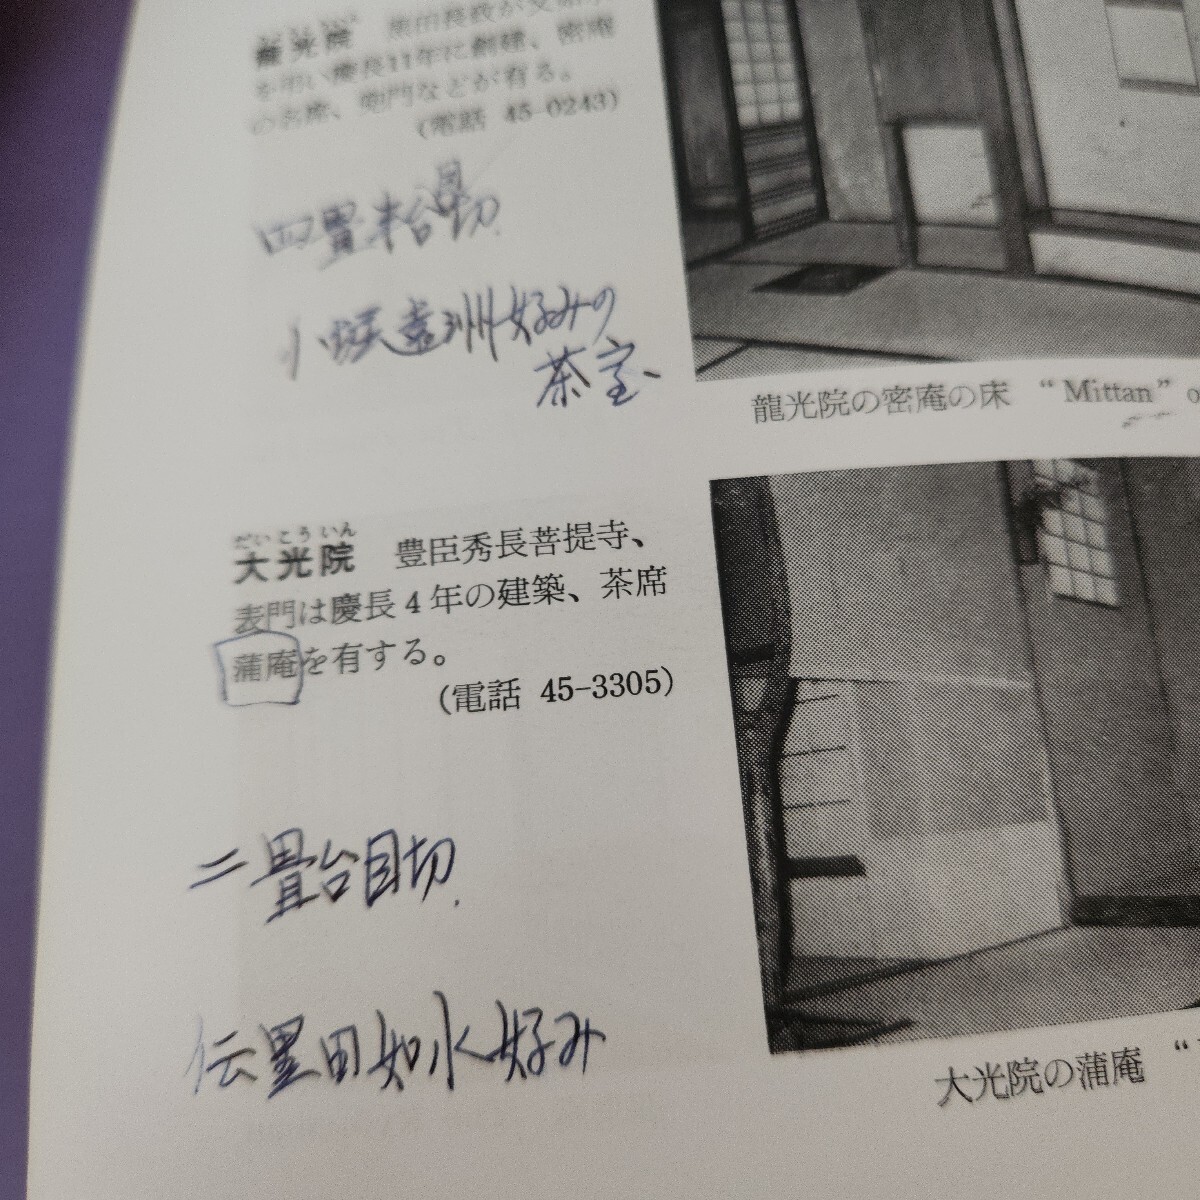 龍光院 黒田長政が父如水
を弔い慶長11年に創建、密庵
の名席、兜門などが有る。
(電話 45-0243)
四畳半台目切
小堀遠州好みの
茶室、
龍光院の密庵の床 “Mittan” o
だいこういん
大光院 豊臣秀長菩提寺、
表門は慶長4年の建築、茶席
蒲庵を有する。
(電話 45-3305)
二畳台目切.
伝黒田如水好み
大光院の蒲庵 “